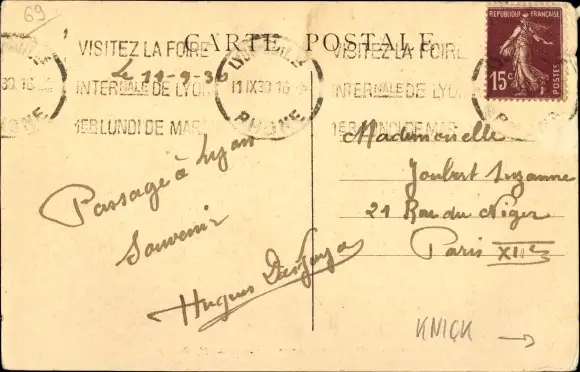 69
CARTE POSTALE
REPUBLIQUE FRANÇAISE
15c
POSTES
VISITEZ LA FOIRE
INTERNALE DE LYON
1ER LUNDI DE MAR
11 IX 30 16
RHONE
VISITEZ LA FOIRE
INTERNALE DE LYON
1ER LUNDI DE MAR
Le 11-9-36
Passage à Lyon
Souvenir
Hugues
Mademoiselle
Joubert Suzanne
21 Rue du Niger
Paris XIIe
KNICK